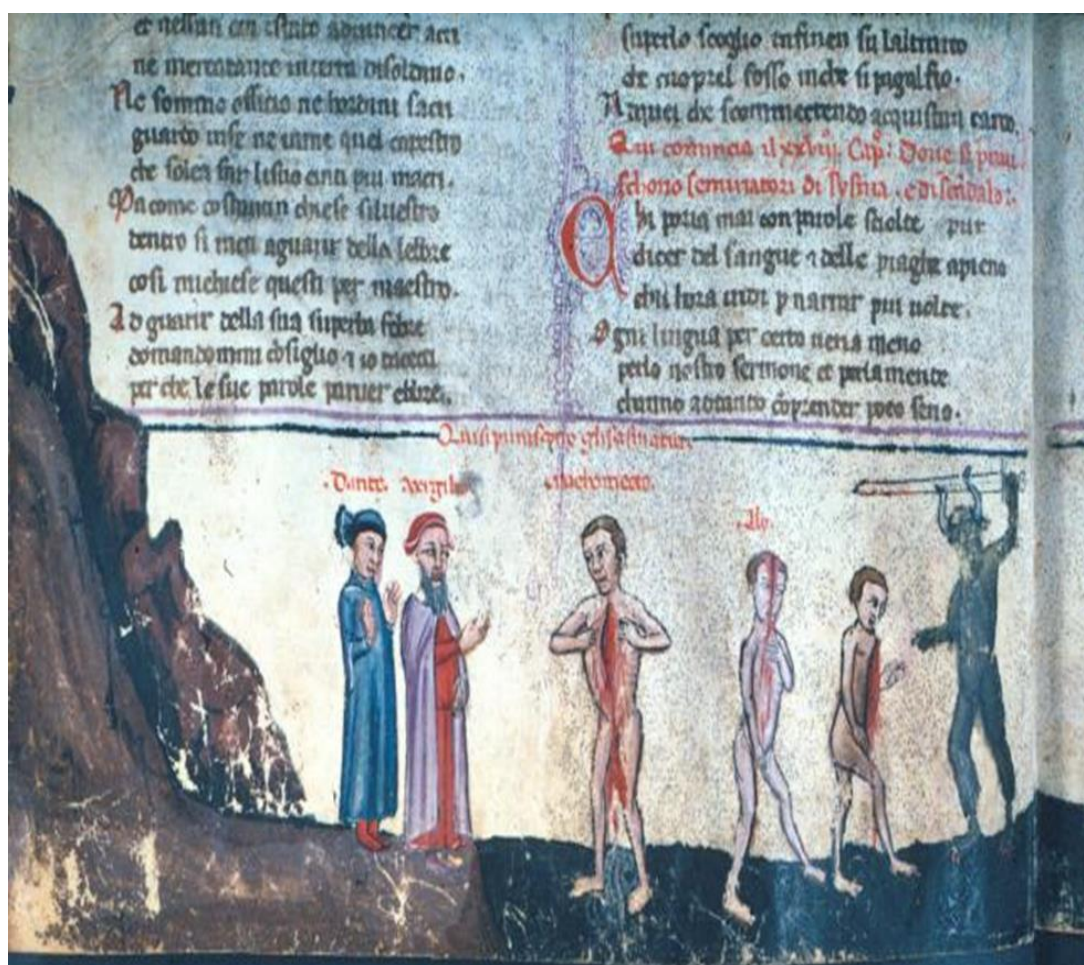 et nessun era stato aduincer acri
ne mercatante interra disoldano.
Ne sommo officio ne hordini sacri
guardo inse ne inme quel capestro
che solea far lisuo cinti piu macri.
Ma come costantin chiese siluestro
dentro aguarir della lebbre
cosi michiese questi per maestro.
Ad guarir della sua superba febre
domandommi cōsiglio 7 io tacetti
perche le sue parole paruer ebbre.
superlo scoglio infinen su laltrarco
che cuoprel fosso inche sipagalfio.
A quei che scommettendo acquistan carco.
Qui comincia il xxviij. Cap. Doue si puni
schono seminatori di scisma. e di scandalo:
Qhi poria mai con parole sciolte pur
dicer del sangue 7 delle piaghe apieno
chi hora uidi p narrar piu uolte.
Ogni lingua per certo ueria meno
perlo nostro sermone et perlamente
channo acotanto cōprender poco seno.
Qui si puniscono gli
.Dante. .Virgilio
.Machometto.
.Aly.